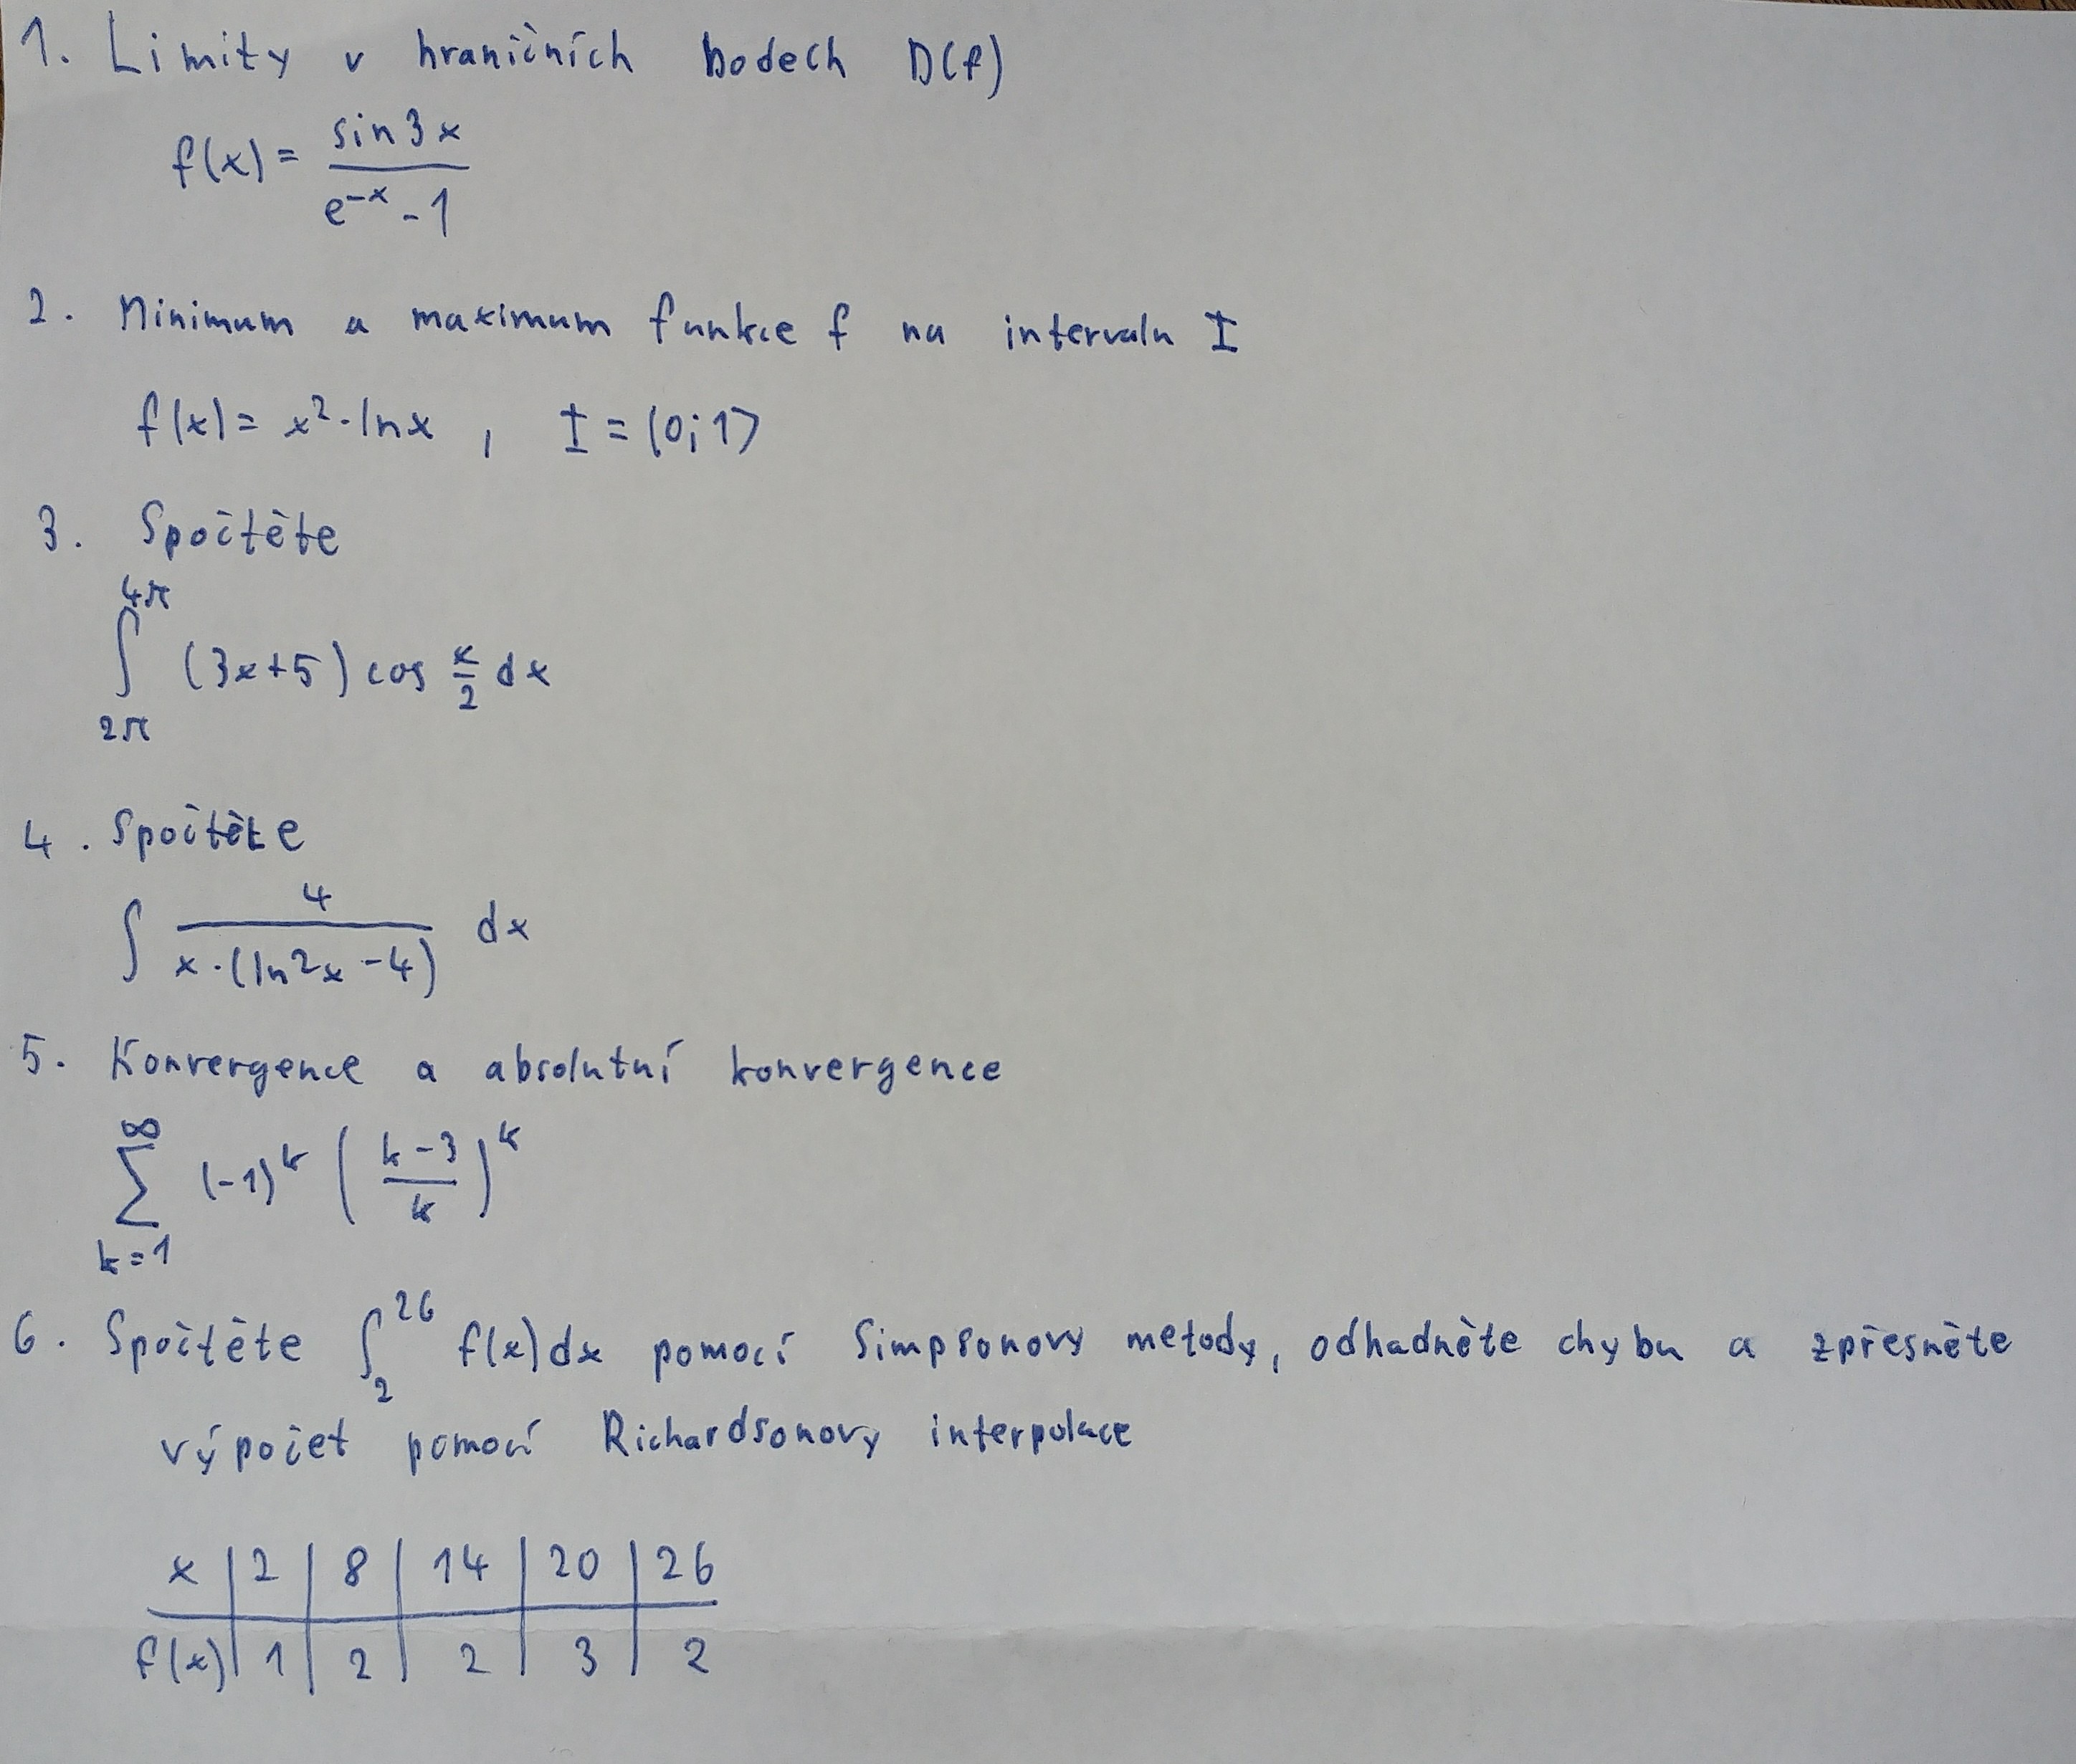 1. Limity v hraničních bodech D(f)
f(x) = sin3x / (e^-x - 1)
2. Minimum a maximum funkce f na intervalu I
f(x) = x^2 · lnx , I = (0; 1⟩
3. Spočtěte
∫_{2π}^{4π} (3x+5) cos x/2 dx
4. Spočtěte
∫ 4 / (x · (ln2x - 4)) dx
5. Konvergence a absolutní konvergence
∑_{k=1}^{∞} (-1)^k ((k-3)/k)^k
6. Spočtěte ∫_2^26 f(x)dx pomocí Simpsonovy metody, odhadněte chybu a zpřesněte
výpočet pomocí Richardsonovy interpolace
x | 2 | 8 | 14 | 20 | 26
f(x) | 1 | 2 | 2 | 3 | 2